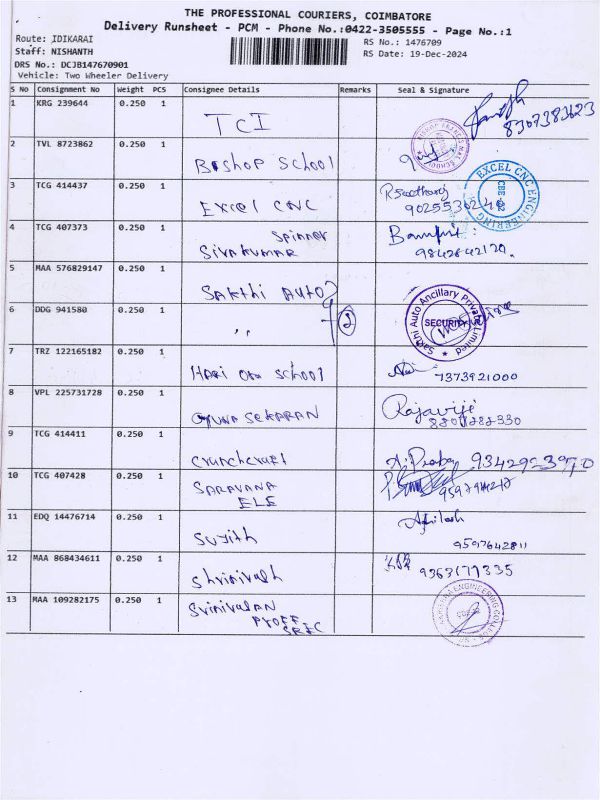 THE PROFESSIONAL COURIERS, COIMBATORE
Delivery Runsheet - PCM - Phone No.:0422-3505555 - Page No.:1
Route: IDIKARAI
RS No.: 1476709
Staff: NISHANTH
RS Date: 19-Dec-2024
DRS No.: DCJB147670901
Vehicle: Two Wheeler Delivery
S No Consignment No Weight PCS Consignee Details Remarks Seal & Signature
1 KRG 239644 0.250 1 TCI
2 TVL 8723862 0.250 1 Bishop School
3 TCG 414437 0.250 1 Excel CNC EXCEL CNC ENGINEERING
4 TCG 407373 0.250 1 Sivakumar 9842642120.
5 MAA 576829147 0.250 1 Sakthi Auto
6 DDG 941580 0.250 1 ,, 2 Sakthi Auto Ancillary Private Limited SECURITY
7 TRZ 122165182 0.250 1 Hari Om School 7373921000
8 VPL 225731728 0.250 1 Guna Sekaran Rajaviji
9 TCG 414411 0.250 1 Crunchcraft
10 TCG 407428 0.250 1 Saravana ELE
11 EDQ 14476714 0.250 1 Sujith 9597642811
12 MAA 868434611 0.250 1 Shrinivash 9363177335
13 MAA 109282175 0.250 1 Srinivasan ENGINEERING COLLEGE